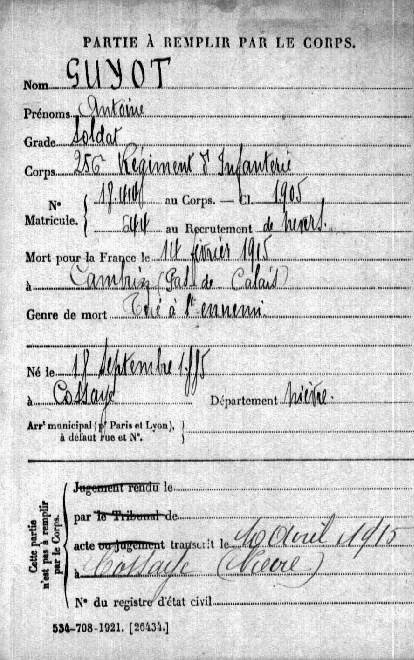 PARTIE À REMPLIR PAR LE CORPS.
Nom GUYOT
Prénoms Antoine
Grade Soldat
Corps 256 Régiment d'Infanterie
N° Matricule. { 1844 au Corps. — Cl. 1905
544 au Recrutement de Nevers.
Mort pour la France le février 1915
à Cambrin (Pas de Calais)
Genre de mort Tué à l'ennemi.
Né le 18 Septembre 1885
à Cossaye Département Nièvre.
Arrt municipal (pr Paris et Lyon), à défaut rue et N°. {
Cette partie n'est pas à remplir par le Corps.
Jugement rendu le
par le Tribunal de
acte ou jugement transcrit le 10 Avril 1915
à Cossaye (Nièvre)
N° du registre d'état civil
534-708-1921. [26434.]